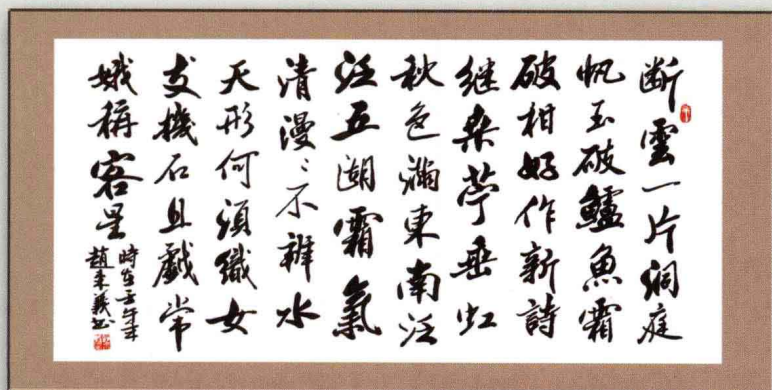 断雲一片洞庭
帆玉破鱸魚霜
破相好作新詩
继桑苧垂虹
秋色滿東南泛
泛五湖霜氣
清漫〻不辨水
天形何須織女
支機石且戲常
娥稱客星
時在壬午年
趙来義书